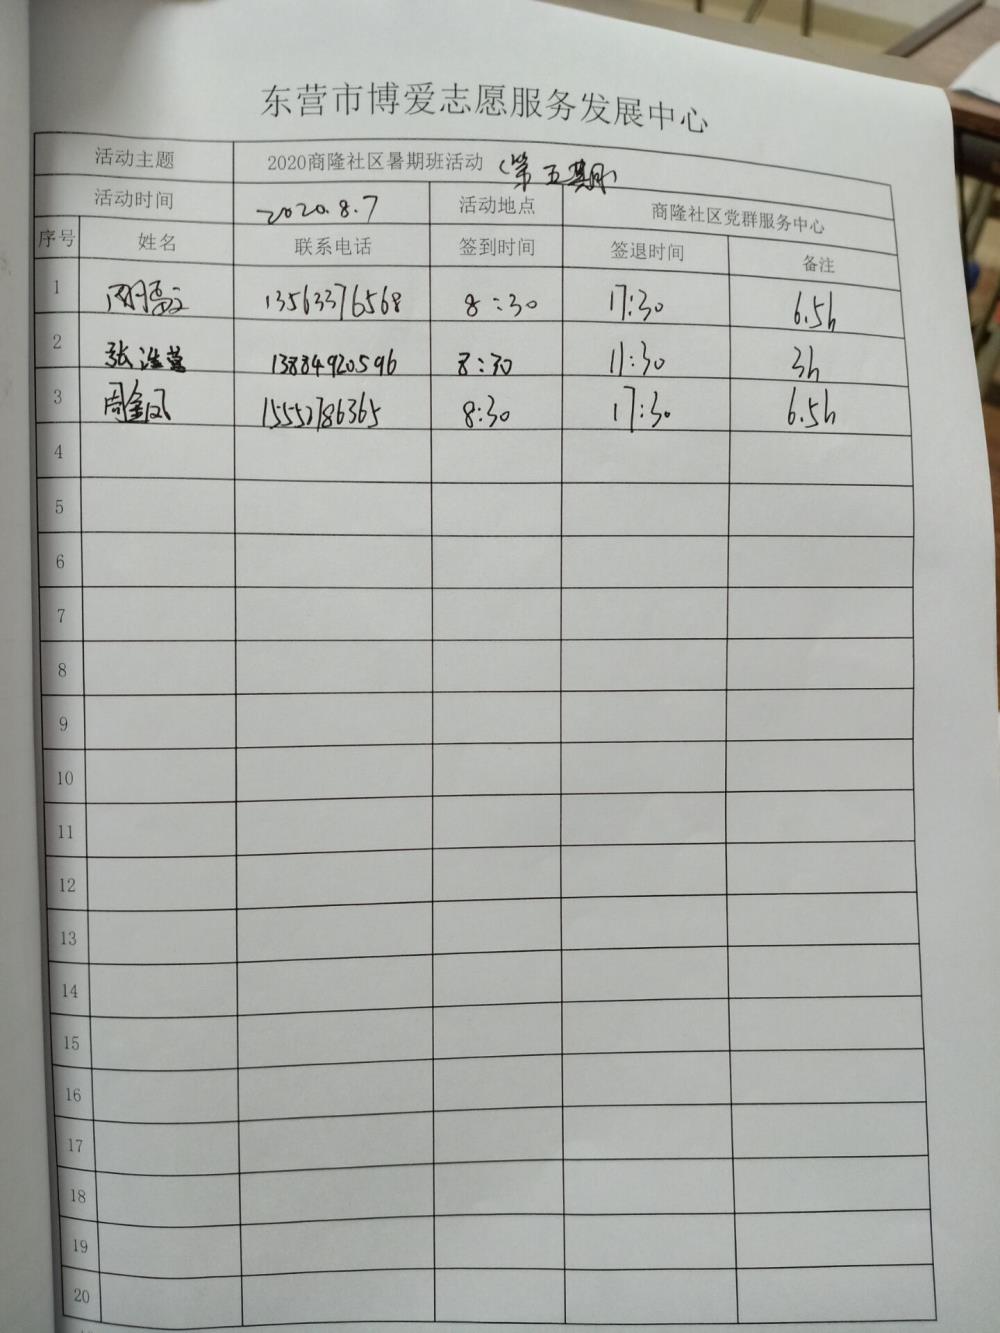 东营市博爱志愿服务发展中心
活动主题 2020商隆社区暑期班活动（第五期）
活动时间 2020.8.7 活动地点 商隆社区党群服务中心
序号 姓名 联系电话 签到时间 签退时间 备注
1 13563376568 8:30 17:30 6.5h
2 张 13884920596 8:30 11:30 3h
3 周金凤 15552786365 8:30 17:30 6.5h
4
5
6
7
8
9
10
11
12
13
14
15
16
17
18
19
20